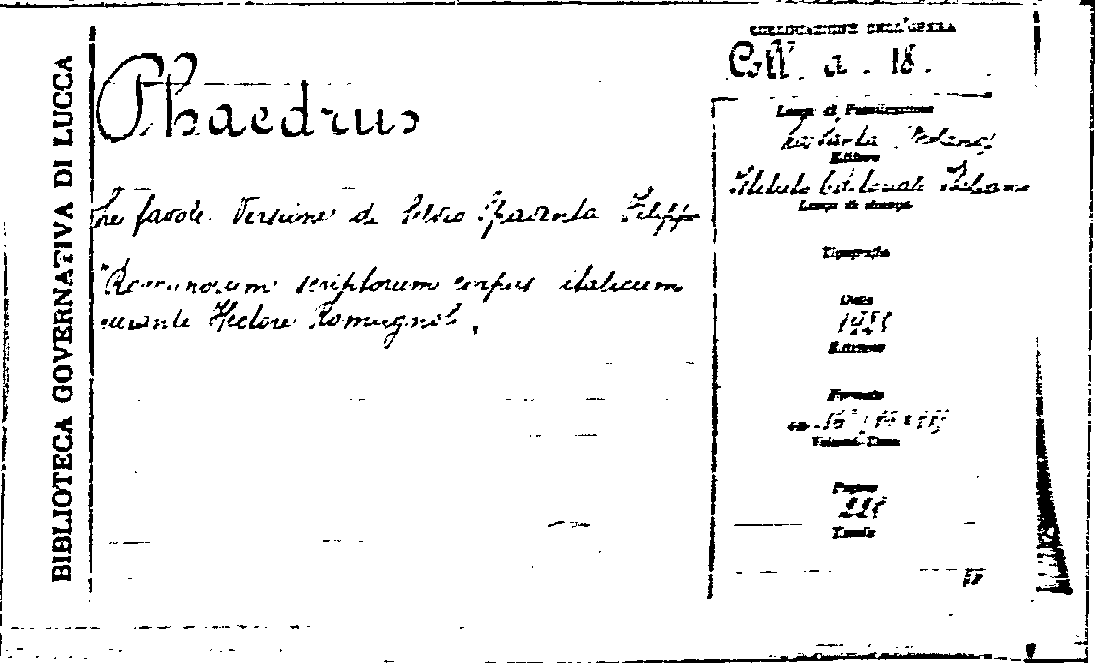 BIBLIOTECA GOVERNATIVA DI LUCCA
Phaedrus
Le favole. Versione di Silvio Spaventa Filippi
"Romanorum scriptorum corpus italicum
curante Hectore Romagnoli,
COLLOCAZIONE DELL'OPERA
Coll. a. 18.
Luogo di Pubblicazione
Milano
Editore
Istituto Editoriale Italiano
Luogo di stampa
Tipografia
Data
Edizione
Formato
in-16°
Volumi-Tomi
Pagine
Tavole